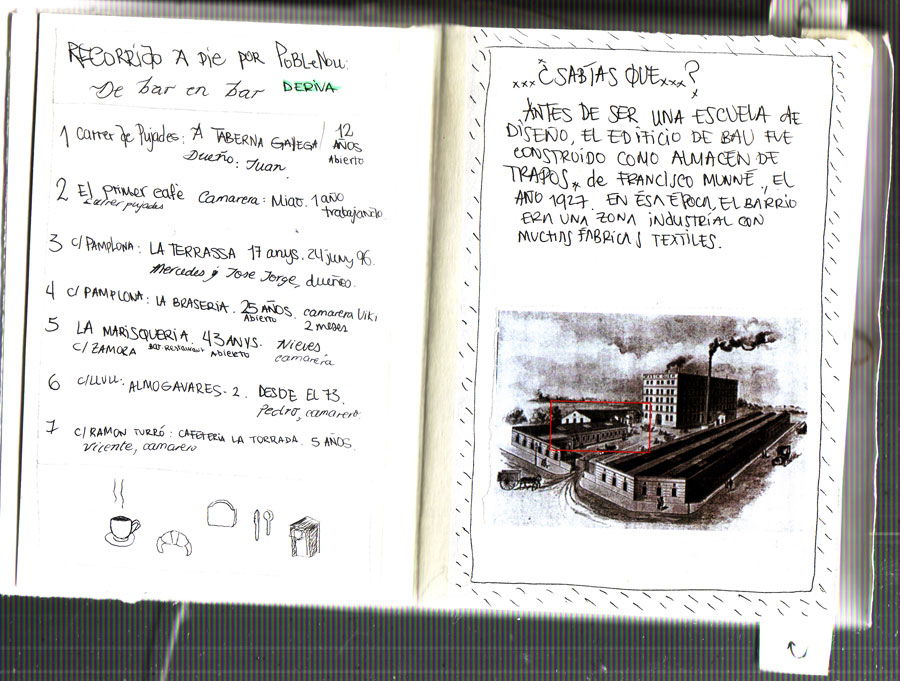 RECORRIDO A PIE POR POBLENOU:
De bar en bar DERIVA
1 Carrer de Pujades: A TABERNA GALLEGA / 12 AÑOS Abierto
Dueño: Juan.
2 El primer café Camarera: Miao. 1 año trabajando
carrer pujades
3 C/PAMPLONA: LA TERRASSA 17 anys. 24 juny 96.
Mercedes y Jose Jorge, dueños.
4 C/ PAMPLONA: LA BRASERIA. 25 AÑOS. camarera Viki
Abierto 2 meses
5 LA MARISQUERIA. 43 ANYS. Nieves
C/ ZAMORA bar-restaurant ABIERTO camarera
6 C/LLULL: ALMOGAVARES-2. DESDE EL 73.
Pedro, camarero.
7 C/RAMON TURRÓ: CAFETERIA LA TORRADA. 5 AÑOS.
Vicente, camarero
...¿SABÍAS QUE...?
ANTES DE SER UNA ESCUELA de
DISEÑO, EL EDIFICIO DE BAU FUE
CONSTRUIDO COMO ALMACÉN DE
TRAPOS, de FRANCISCO MUNNÉ, EL
AÑO 1927. EN ÉSA ÉPOCA, EL BARRIO
ERA UNA ZONA INDUSTRIAL CON
MUCHAS FÁBRICAS TEXTILES.